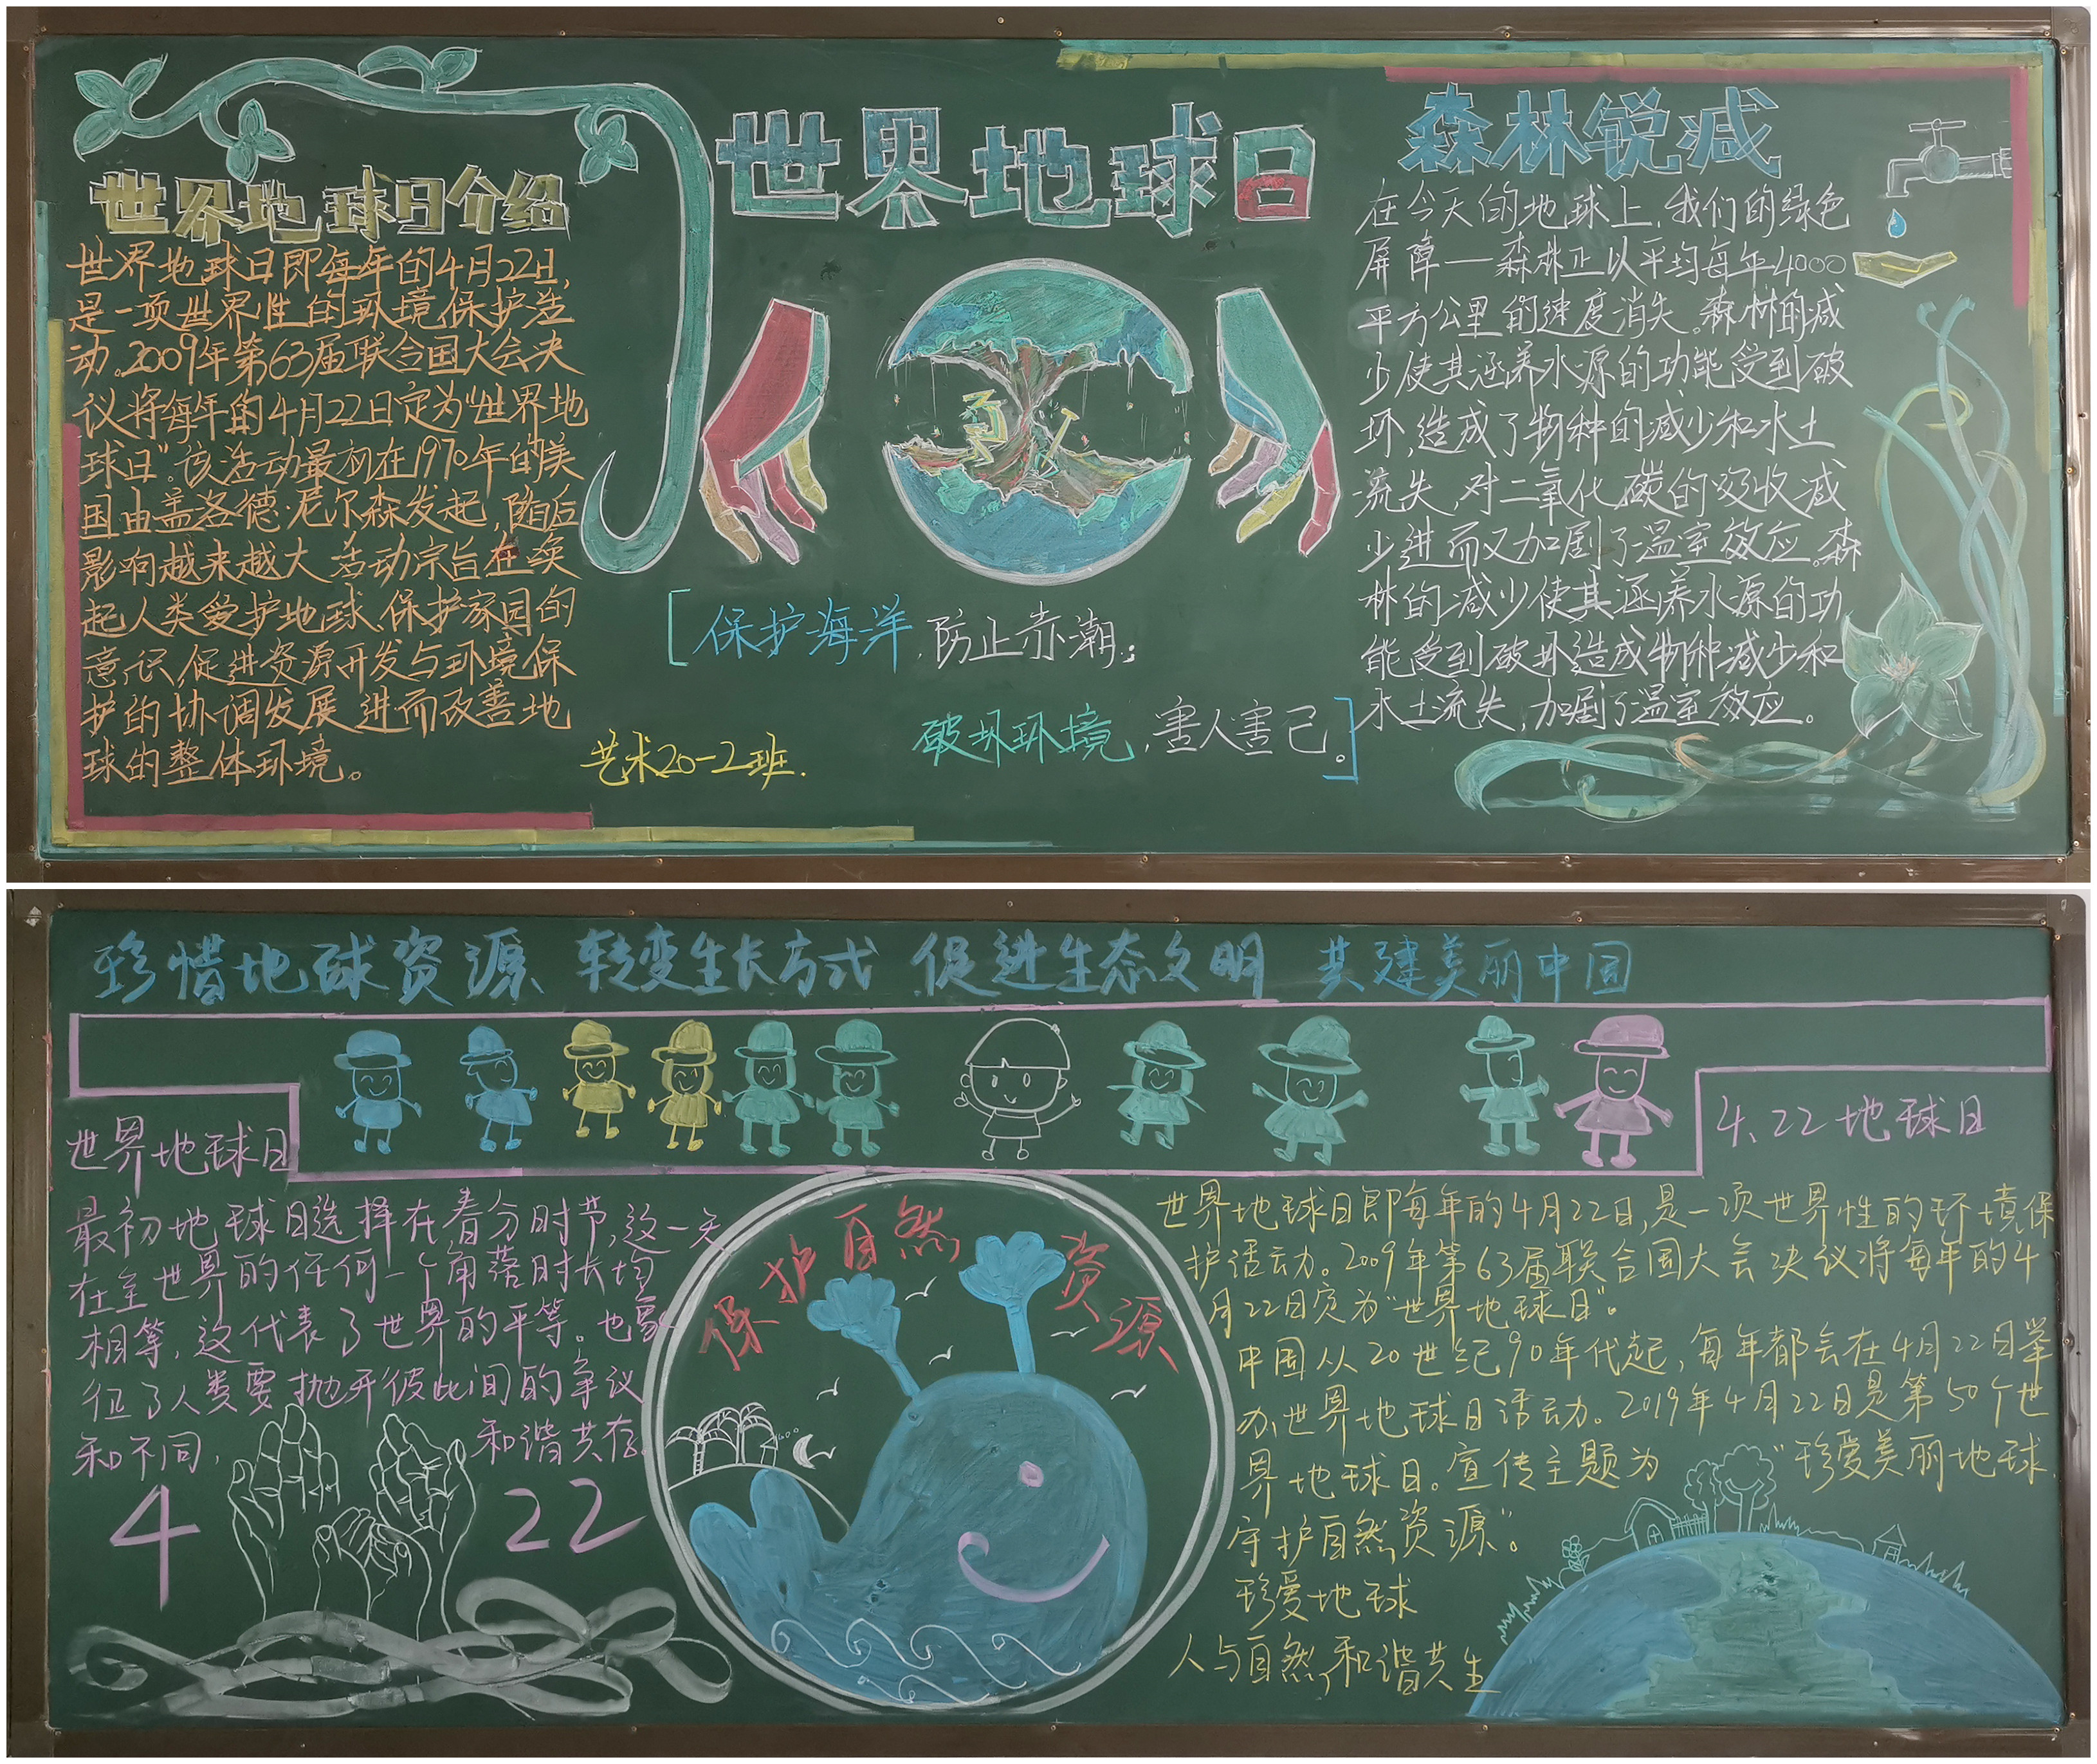 世界地球日
世界地球日介绍
世界地球日即每年的4月22日,
是一项世界性的环境保护活
动。2009年第63届联合国大会决
议将每年的4月22日定为“世界地
球日”。该活动最初在1970年的美
国由盖洛德·尼尔森发起,随后
影响越来越大 活动宗旨在唤
起人类爱护地球、保护家园的
意识,促进资源开发与环境保
护的协调发展 进而改善地
球的整体环境。
[保护海洋,防止赤潮;
破坏环境,害人害己。]
艺术20-2班.
森林锐减
在今天的地球上,我们的绿色
屏障一森林正以平均每年4000
平方公里的速度消失。森林的减
少使其涵养水源的功能受到破
坏,造成了物种的减少和水土
流失,对二氧化碳的吸收减
少进而又加剧了温室效应。森
林的减少使其涵养水源的功
能受到破坏造成物种减少和
水土流失,加剧了温室效应。
珍惜地球资源 转变生长方式 促进生态文明 共建美丽中国
世界地球日
最初地球日选择在春分时节,这一天
在全世界的任何一个角落时长均
相等,这代表了世界的平等。也象
征了人类要抛开彼此间的争议
和不同, 和谐共存.
4 22
保护自然资源
4.22地球日
世界地球日即每年的4月22日,是一项世界性的环境保
护活动。2009年第63届联合国大会决议将每年的4
月22日定为“世界地球日”。
中国从20世纪90年代起,每年都会在4月22日举
办世界地球日活动。2019年4月22日是第50个世
界地球日。宣传主题为 “珍爱美丽地球.
守护自然资源”。
珍爱地球
人与自然和谐共生